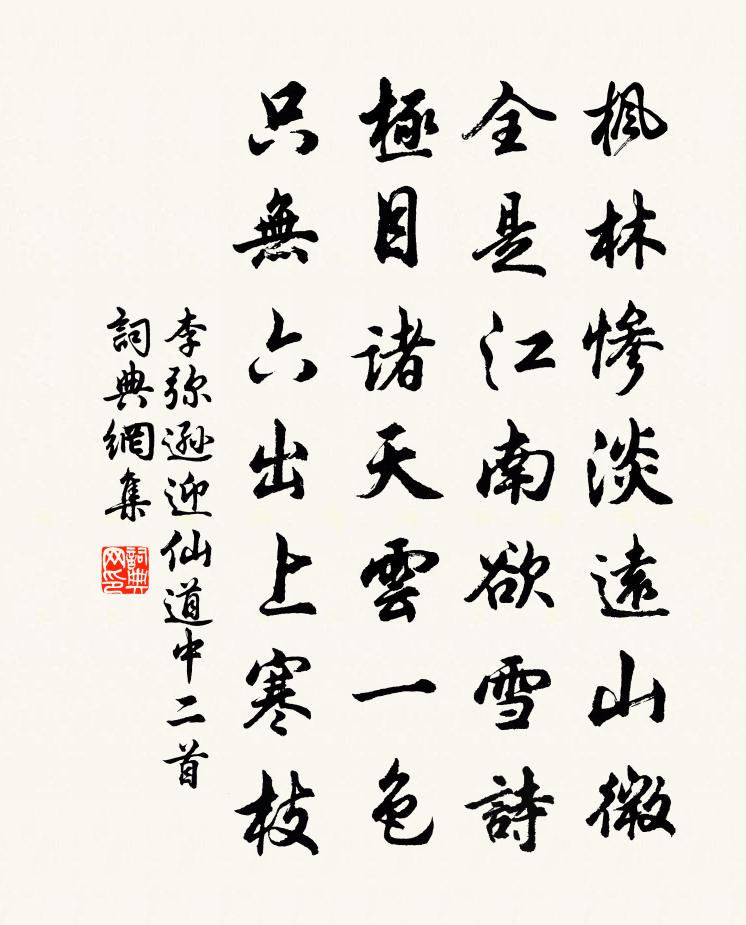 枫林惨淡遠山微
全是江南欲雪詩
極目诸天雲一色
只無六出上寒枝
李弥遜迎仙道中二首
詞典網集
詞典网印